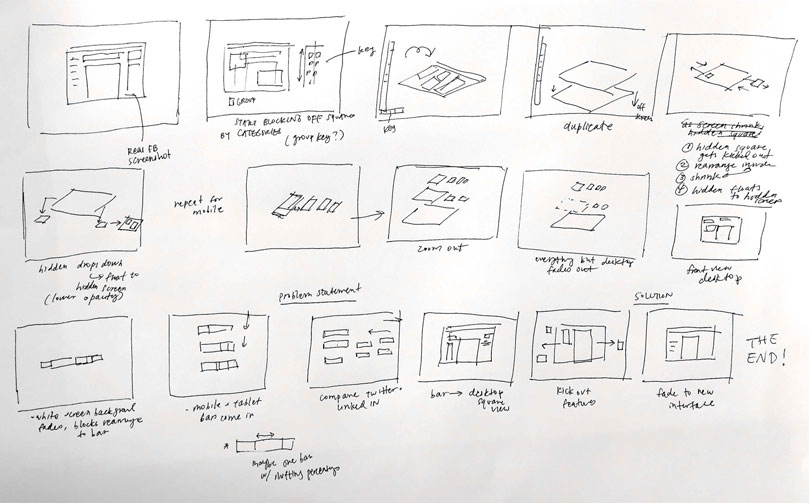 Real FB
screenshot
GROUP
START BLOCKING OFF SQUARES
BY CATEGORIES
(group key?)
key
key
duplicate
off
screen
as screen shrinks
hidden square
① hidden square
gets kicked out
② rearrange inside
③ shrinks
④ hidden floats
to hidden
screen
hidden drops down
float to
hidden screen
(lower opacity)
repeat for
mobile
zoom out
everything but desktop
fades out
front view
desktop
problem statement
SOLUTION
- white screen background
fades, blocks rearrange
to bar
- mobile + tablet
bars come in
* maybe one bar
w/ shifting percentages
compare twitter
linked IN
bar → desktop
square
view
kick out
features
fade to new
interface
THE
END!